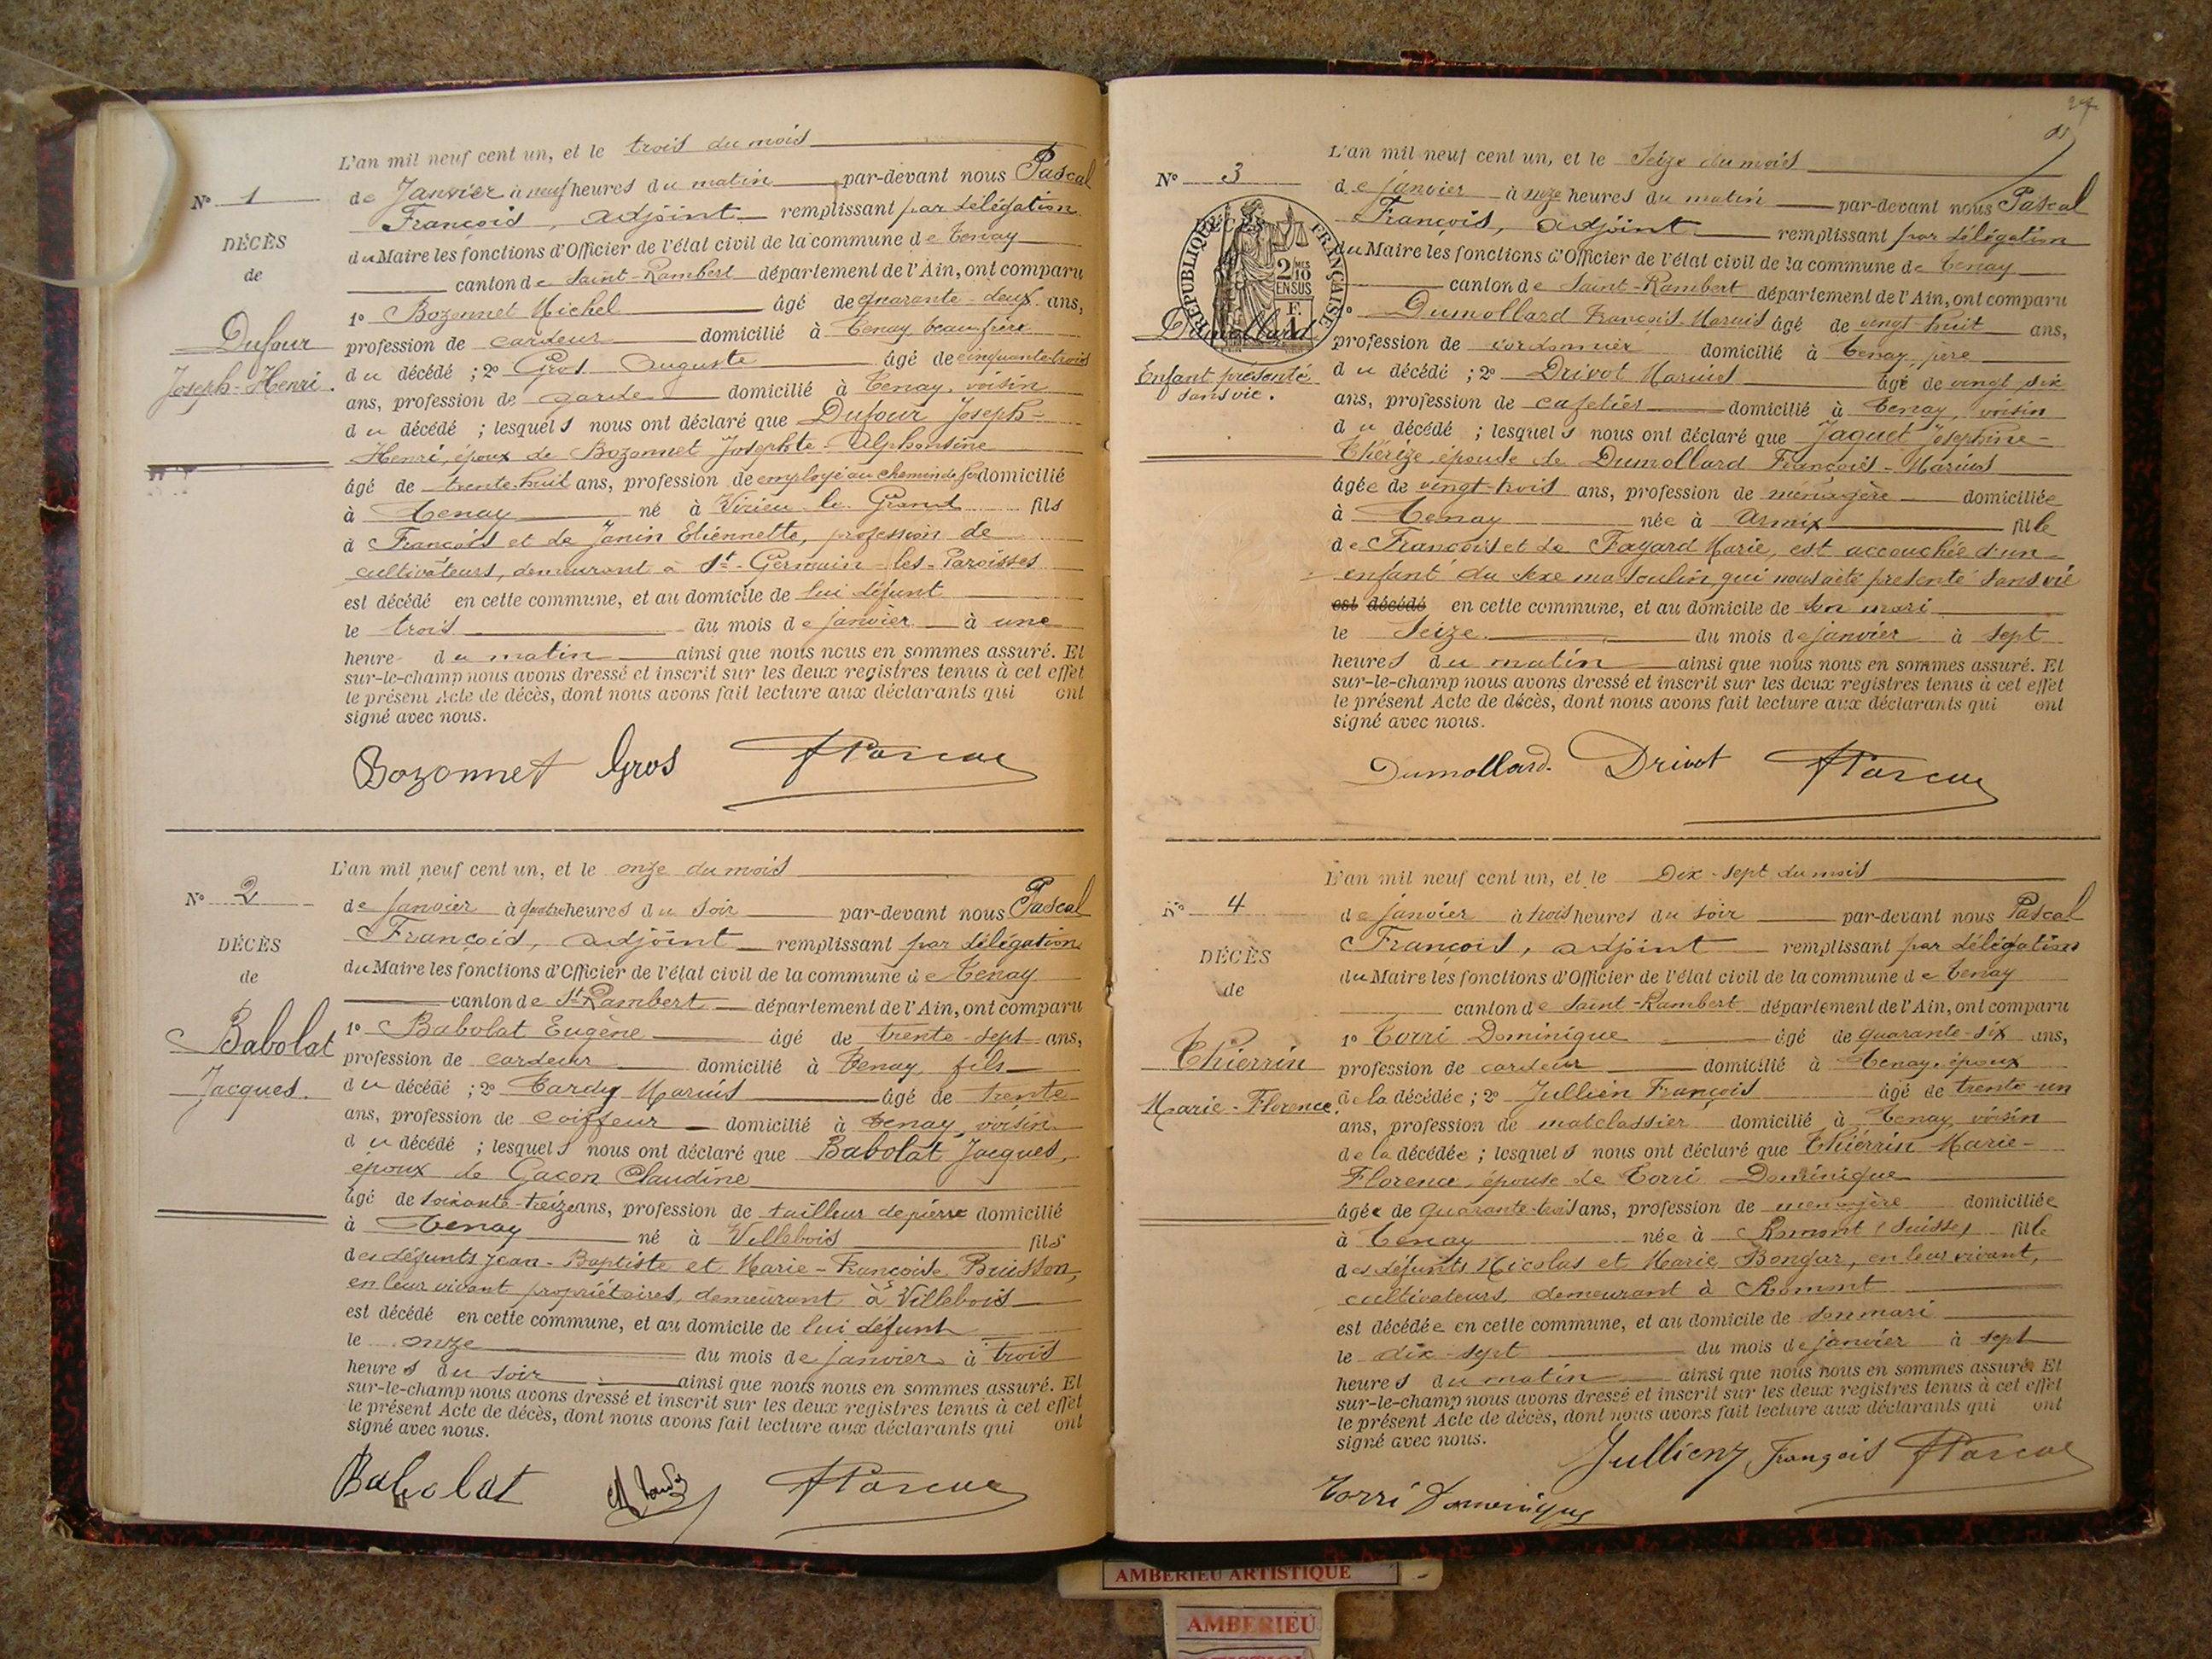 L'an mil neuf cent un, et le trois du mois
N° 1
de Janvier à neuf heures du matin par-devant nous Pascal
François, adjoint remplissant par délégation
DÉCÈS
du Maire les fonctions d'Officier de l'état civil de la commune de Tenay
de
canton de Saint-Rambert département de l'Ain, ont comparu
1° Bozonnet Michel âgé de quarante-deux ans,
Dufour
profession de cardeur domicilié à Tenay, beau-frère
du décédé ; 2° Gros Auguste âgé de cinquante-trois
Joseph-Henri.
ans, profession de garde domicilié à Tenay, voisin
du décédé ; lesquels nous ont déclaré que Dufour Joseph-
Henri, époux de Bozonnet Josephte-Alphonsine
âgé de trente-huit ans, profession de employé au chemin de fer domicilié
à Tenay né à Virieu-le-Grand fils
d François et de Janin Etiennette, profession de
cultivateurs, demeurant à St-Germain-les-Paroisses
est décédé en cette commune, et au domicile de lui défunt
le trois du mois de janvier à une
heure du matin ainsi que nous nous en sommes assuré. Et
sur-le-champ nous avons dressé et inscrit sur les deux registres tenus à cet effet
le présent Acte de décès, dont nous avons fait lecture aux déclarants qui ont
signé avec nous.
Bozonnet Gros FPascal
L'an mil neuf cent un, et le onze du mois
N° 2
de janvier à quatre heures du soir par-devant nous Pascal
François, adjoint remplissant par délégation
DÉCÈS
du Maire les fonctions d'Officier de l'état civil de la commune de Tenay
de
canton de St Rambert département de l'Ain, ont comparu
1° Babolat Eugène âgé de trente-sept ans,
Babolat
profession de cardeur domicilié à Tenay, fils
du décédé ; 2° Tardy Marius âgé de trente
Jacques.
ans, profession de coiffeur domicilié à Tenay, voisin
du décédé ; lesquels nous ont déclaré que Babolat Jacques,
époux de Gacon Claudine
âgé de soixante-treize ans, profession de tailleur de pierre domicilié
à Tenay né à Villebois fils
des défunts Jean-Baptiste et Marie-Françoise Buisson,
en leur vivant propriétaires, demeurant à Villebois
est décédé en cette commune, et au domicile de lui défunt
le onze du mois de janvier à trois
heures du soir ainsi que nous nous en sommes assuré. Et
sur-le-champ nous avons dressé et inscrit sur les deux registres tenus à cet effet
le présent Acte de décès, dont nous avons fait lecture aux déclarants qui ont
signé avec nous.
Babolat FPascal
L'an mil neuf cent un, et le Seize du mois
N° 3
de janvier à onze heures du matin par-devant nous Pascal
François, adjoint remplissant par délégation
RÉPUBLIQUE FRANÇAISE
2 MES 10 EN SUS
F. 1
du Maire les fonctions d'Officier de l'état civil de la commune de Tenay
canton de Saint-Rambert département de l'Ain, ont comparu
1° Dumollard François Marius âgé de vingt-huit ans,
Dumollard
profession de cordonnier domicilié à Tenay, père
Enfant présenté
sans vie.
du décédé ; 2° Drivot Marius âgé de vingt-six
ans, profession de cafetier domicilié à Tenay, voisin
du décédé ; lesquels nous ont déclaré que Jaquet Josephine-
Thérèze, épouse de Dumollard François-Marius
âgée de vingt-trois ans, profession de ménagère domiciliée
à Tenay née à Armix fille
de François et de Fayard Marie, est accouchée d'un
enfant du sexe masculin, qui nous a été présenté sans vie
est décédé en cette commune, et au domicile de son mari
le Seize du mois de janvier à sept
heures du matin ainsi que nous nous en sommes assuré. Et
sur-le-champ nous avons dressé et inscrit sur les deux registres tenus à cet effet
le présent Acte de décès, dont nous avons fait lecture aux déclarants qui ont
signé avec nous.
Dumollard. Drivot FPascal
L'an mil neuf cent un, et le Dix-sept du mois
N° 4
de janvier à trois heures du soir par-devant nous Pascal
François, adjoint remplissant par délégation
DÉCÈS
du Maire les fonctions d'Officier de l'état civil de la commune de Tenay
de
canton de Saint-Rambert département de l'Ain, ont comparu
1° Torri Dominique âgé de quarante-six ans,
Thierrin
profession de cardeur domicilié à Tenay, époux
Marie-Florence.
de la décédée ; 2° Jullien François âgé de trente-un
ans, profession de matelassier domicilié à Tenay, voisin
de la décédée ; lesquels nous ont déclaré que Thierrin Marie-
Florence, épouse de Torri Dominique
âgée de quarante-trois ans, profession de ménagère domiciliée
à Tenay née à Romont (Suisse) fille
des défunts Nicolas et Marie Bongar, en leur vivant,
cultivateurs, demeurant à Romont
est décédée en cette commune, et au domicile de son mari
le dix-sept du mois de janvier à sept
heures du matin ainsi que nous nous en sommes assuré. Et
sur-le-champ nous avons dressé et inscrit sur les deux registres tenus à cet effet
le présent Acte de décès, dont nous avons fait lecture aux déclarants qui ont
signé avec nous.
Jullien François FPascal
Torri Dominique
AMBERIEU ARTISTIQUE
AMBERIEU